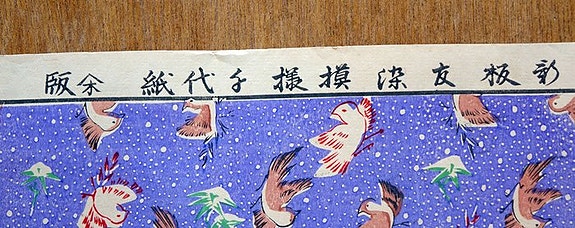 新板友染摸様千代紙 版